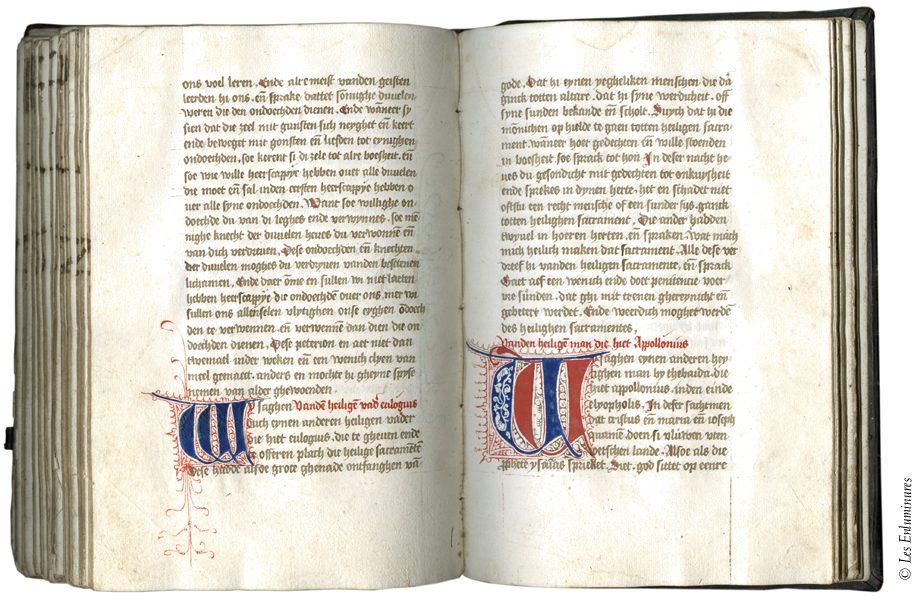 ons voel leren. Ende alremeist vanden geisten
leerden hi ons. eñ sprake dattet sōnighe duuelen
weren die den ondoechden dienen. Ende wāneer sy
sien dat die zeel mit gunsten sich neyghet eñ keert
ende beweget mit gonsten eñ liefden tot eynighen
ondoechden, soe kerent si di zele tot alre boesheit. eñ
soe wie wille heerscappye hebben ouer alle duuelen
die moet eñ sal inden eersten heerscappye hebben o
uer alle syne ondoechden. Want soe willighe on
doechde du van di leghes ende verwynnes. soe mē
nighe knecht der duuelen heues du verwonnē eñ
van dich verdreuen. Dese ondoechden eñ knechten
der duuelen moghes du verdryuen vanden besetenen
lichamen. Ende daer ōme en sullen wi niet laeten
hebben heerscappye die ondoechdē ouer ons. mer wi
sullen ons allensselen vlytighen onse eyghen ōdoech
den te verwennen. eñ verwennē dan dien die on
doechden dienen. Dese peterion en aet niet dan
twemael inder weken eñ een wenich clyen van
meel gemaect. anders en mochte hi gheyne spyse
nemen van alder ghewoenden.
W saghen Vandē heiligē vad' eulogius
ouch eynen anderen heiligen vader
die hiet eulogius. die te gheuen ende
te offeren plach die heilige sacramētē
Dese hadde alsoe grote ghenade ontfanghen vā
gode. Dat hi eynen yegheliken menschen die dā
ginck totten altare. dat hi syne werdicheit. off
syne sunden bekande eñ scholt. Suych dat hi die
mōnichen op hielde te gaen totten heiligen sacra
ment. wāneer hoer gedechten eñ wille stoenden
in boesheit. soe sprack tot hon. In deser nacht he
ues du gesondicht mit gedechten tot onkuysheit
ende sprekes in dynen herte, het en schadet niet
oftstu een recht mensche of een sunder sys. ganck
totten heilighen sacrament. Die ander hadden
twyuel in hoeren herten. eñ spraken. Wat mach
mich heilich maken dat sacrament. Alle dese ver
dreef hi vanden heiligen sacramente, eñ sprack
Gaet aef een wenich ende doet penitencie voer
vre sūnden. dat ghi mit trenen ghereynicht eñ
gebetert werdet. Ende weerdich moghet werdē
des heilighen sacramentes.
Vanden heiligē man die hiet Appollonius
W saghen eynen anderen hey
lighen man by thebaida. die
hiet appollonius. inden einde
elyopholis. In deser stat
vat cristus eñ maria eñ ioseph
quamē. doen si vluwen vten
ioetschen lande. Alsoe als die
pphete ysaias spricket. Siet. god sittet op eenre
© Les Enluminures